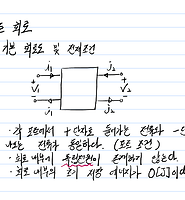 트 회로
기본 회로도 및 전제조건
i₁ i₂
+ V₁ - + V₂ -
i₁ i₂
· 각 포트에서 +단자로 들어가는 전류와 -단
나오는 전류가 동일하다. (포트 조건)
· 회로 내부에 독립전원이 존재하지 않는다.
· 회로 내부의 초기 저장 에너지가 0[J]이다